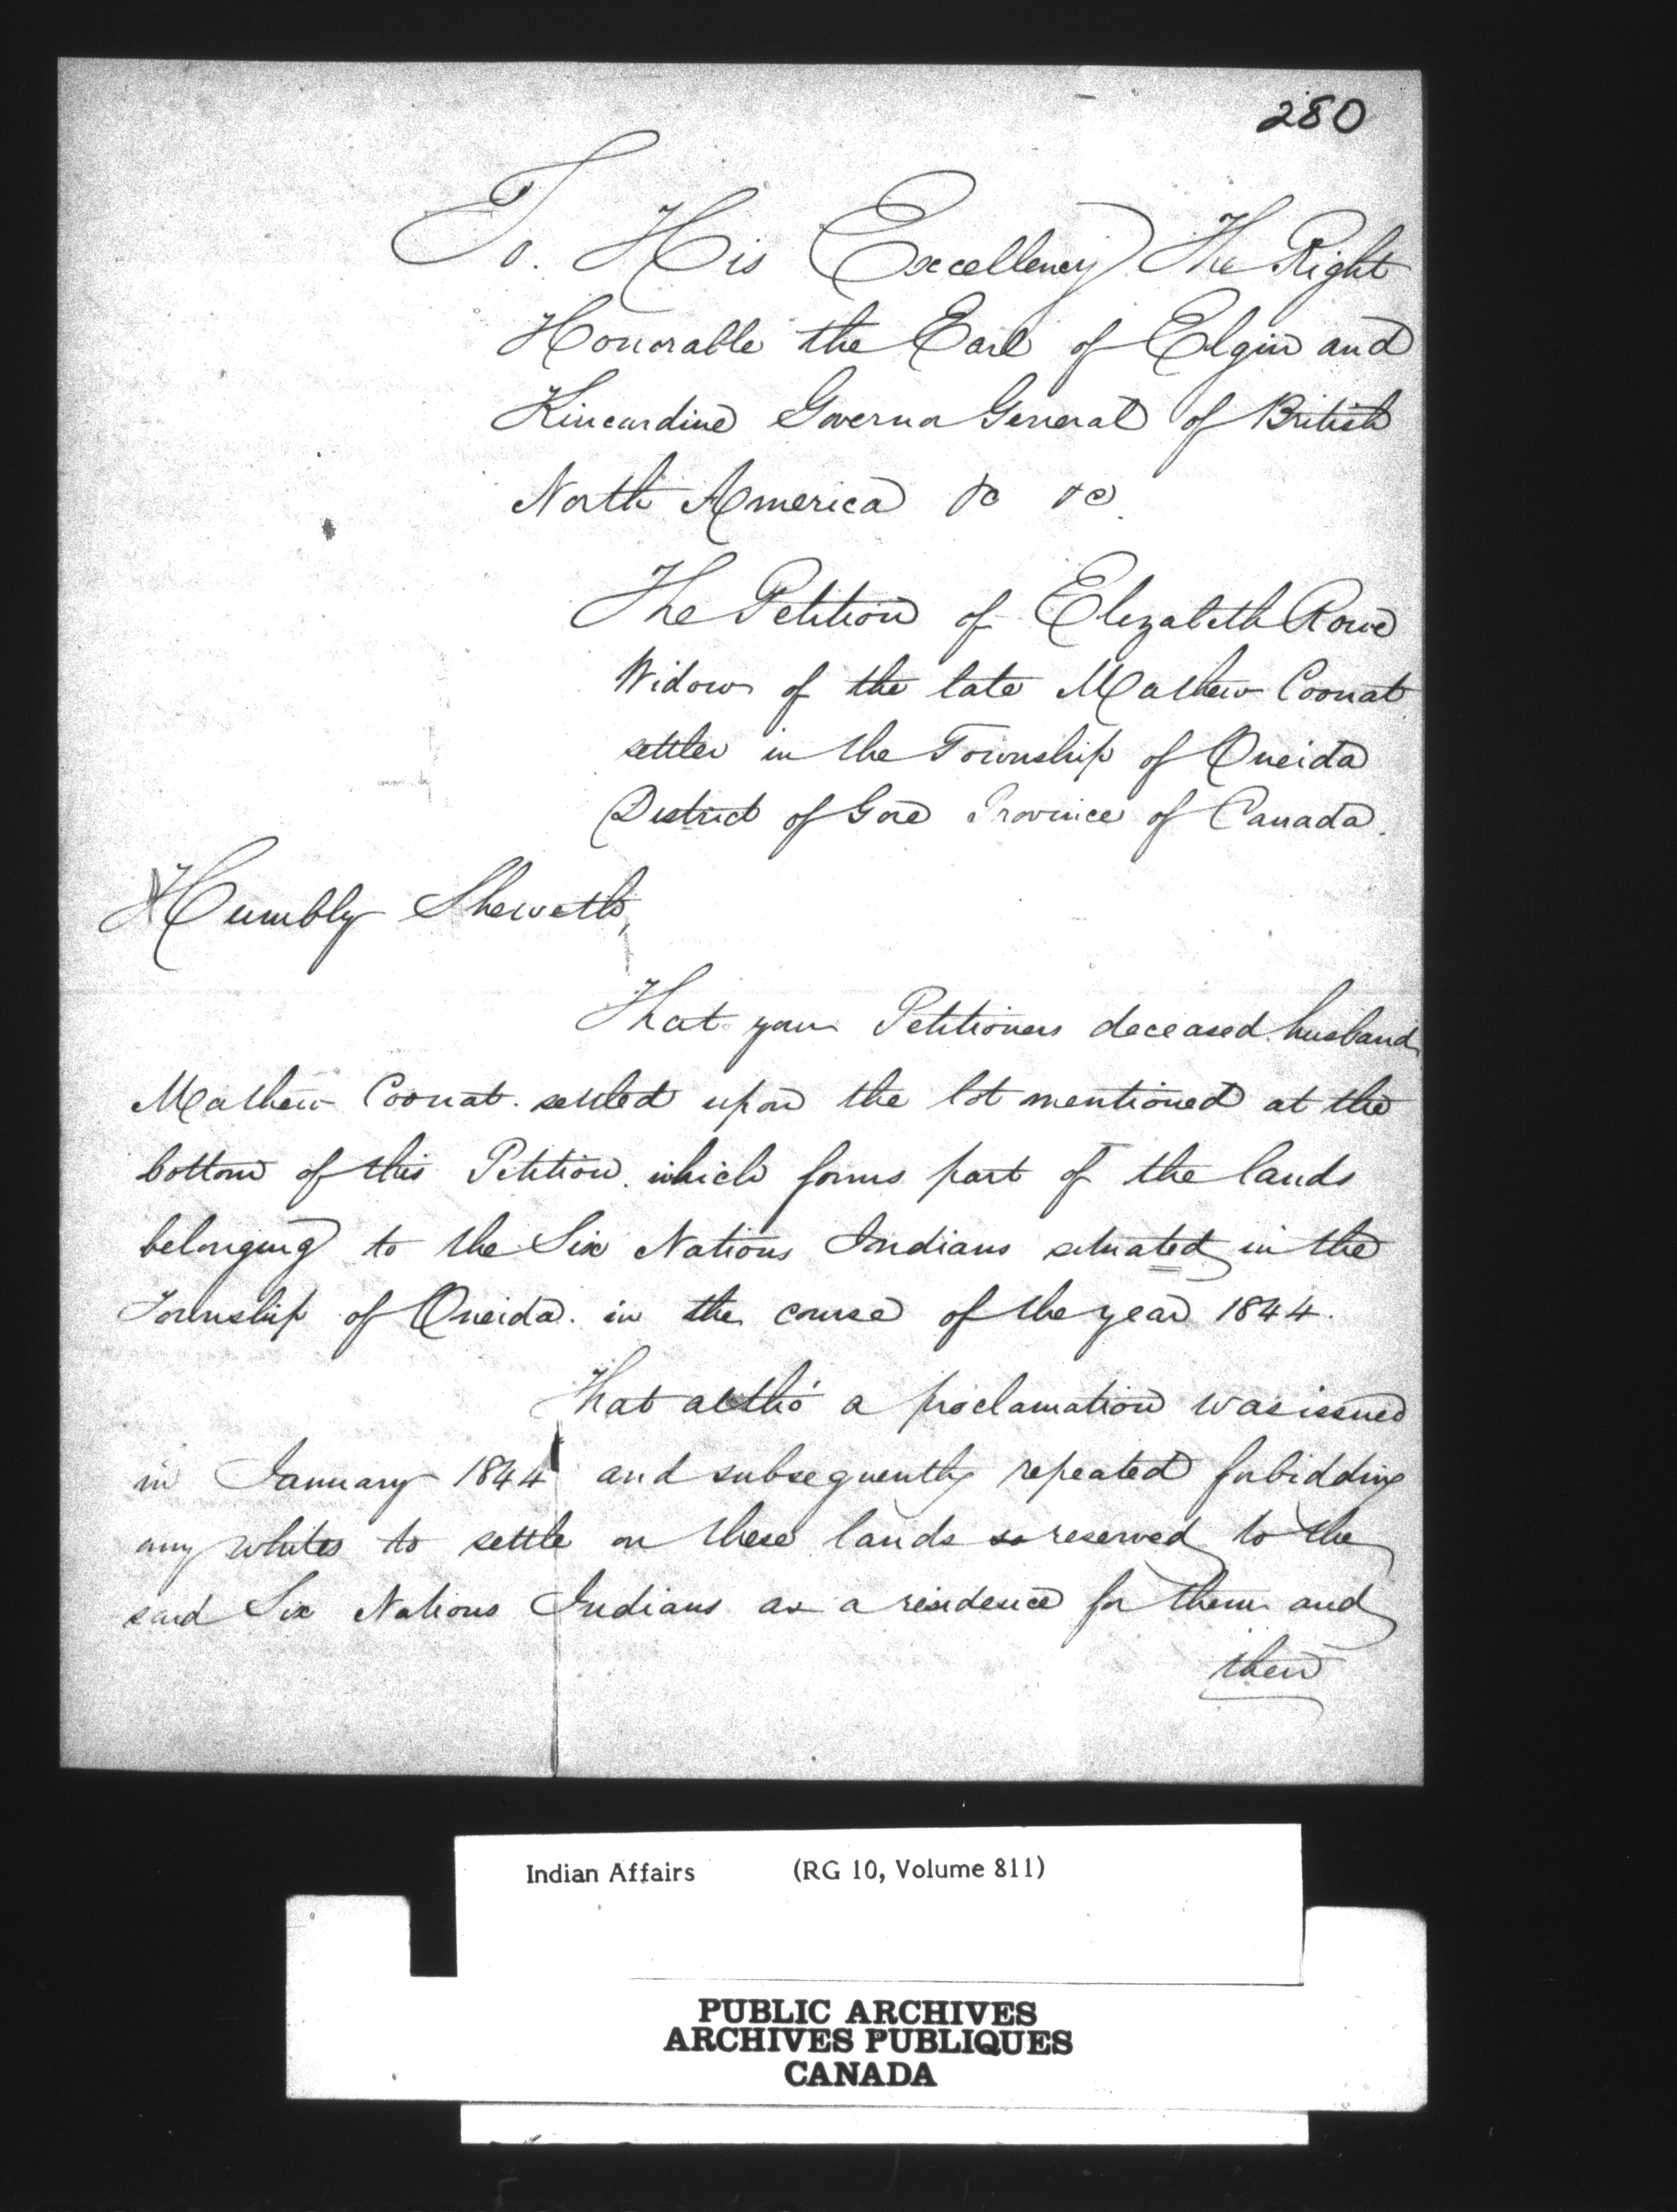 280
To. His Excellency The Right
Honorable the Earl of Elgin and
Kincardine Governor General of British
North America &c &c.
The Petition of Elizabeth Rowe
Widow of the late Mathew Coonat
settler in the Township of Oneida
District of Gore Province of Canada.
Humbly Sheweth,
That your Petitioners deceased husband
Mathew Coonat. settled upon the lot mentioned at the
bottom of this Petition. which forms part of the lands
belonging to the Six Nations Indians situated in the
Township of Oneida. in the course of the year 1844.
That altho' a proclamation was issued
in January 1844 and subsequently repeated forbidding
any whites to settle on these lands so reserved to the
said Six Nations Indians as a residence for them and
their
Indian Affairs (RG 10, Volume 811)
PUBLIC ARCHIVES
ARCHIVES PUBLIQUES
CANADA